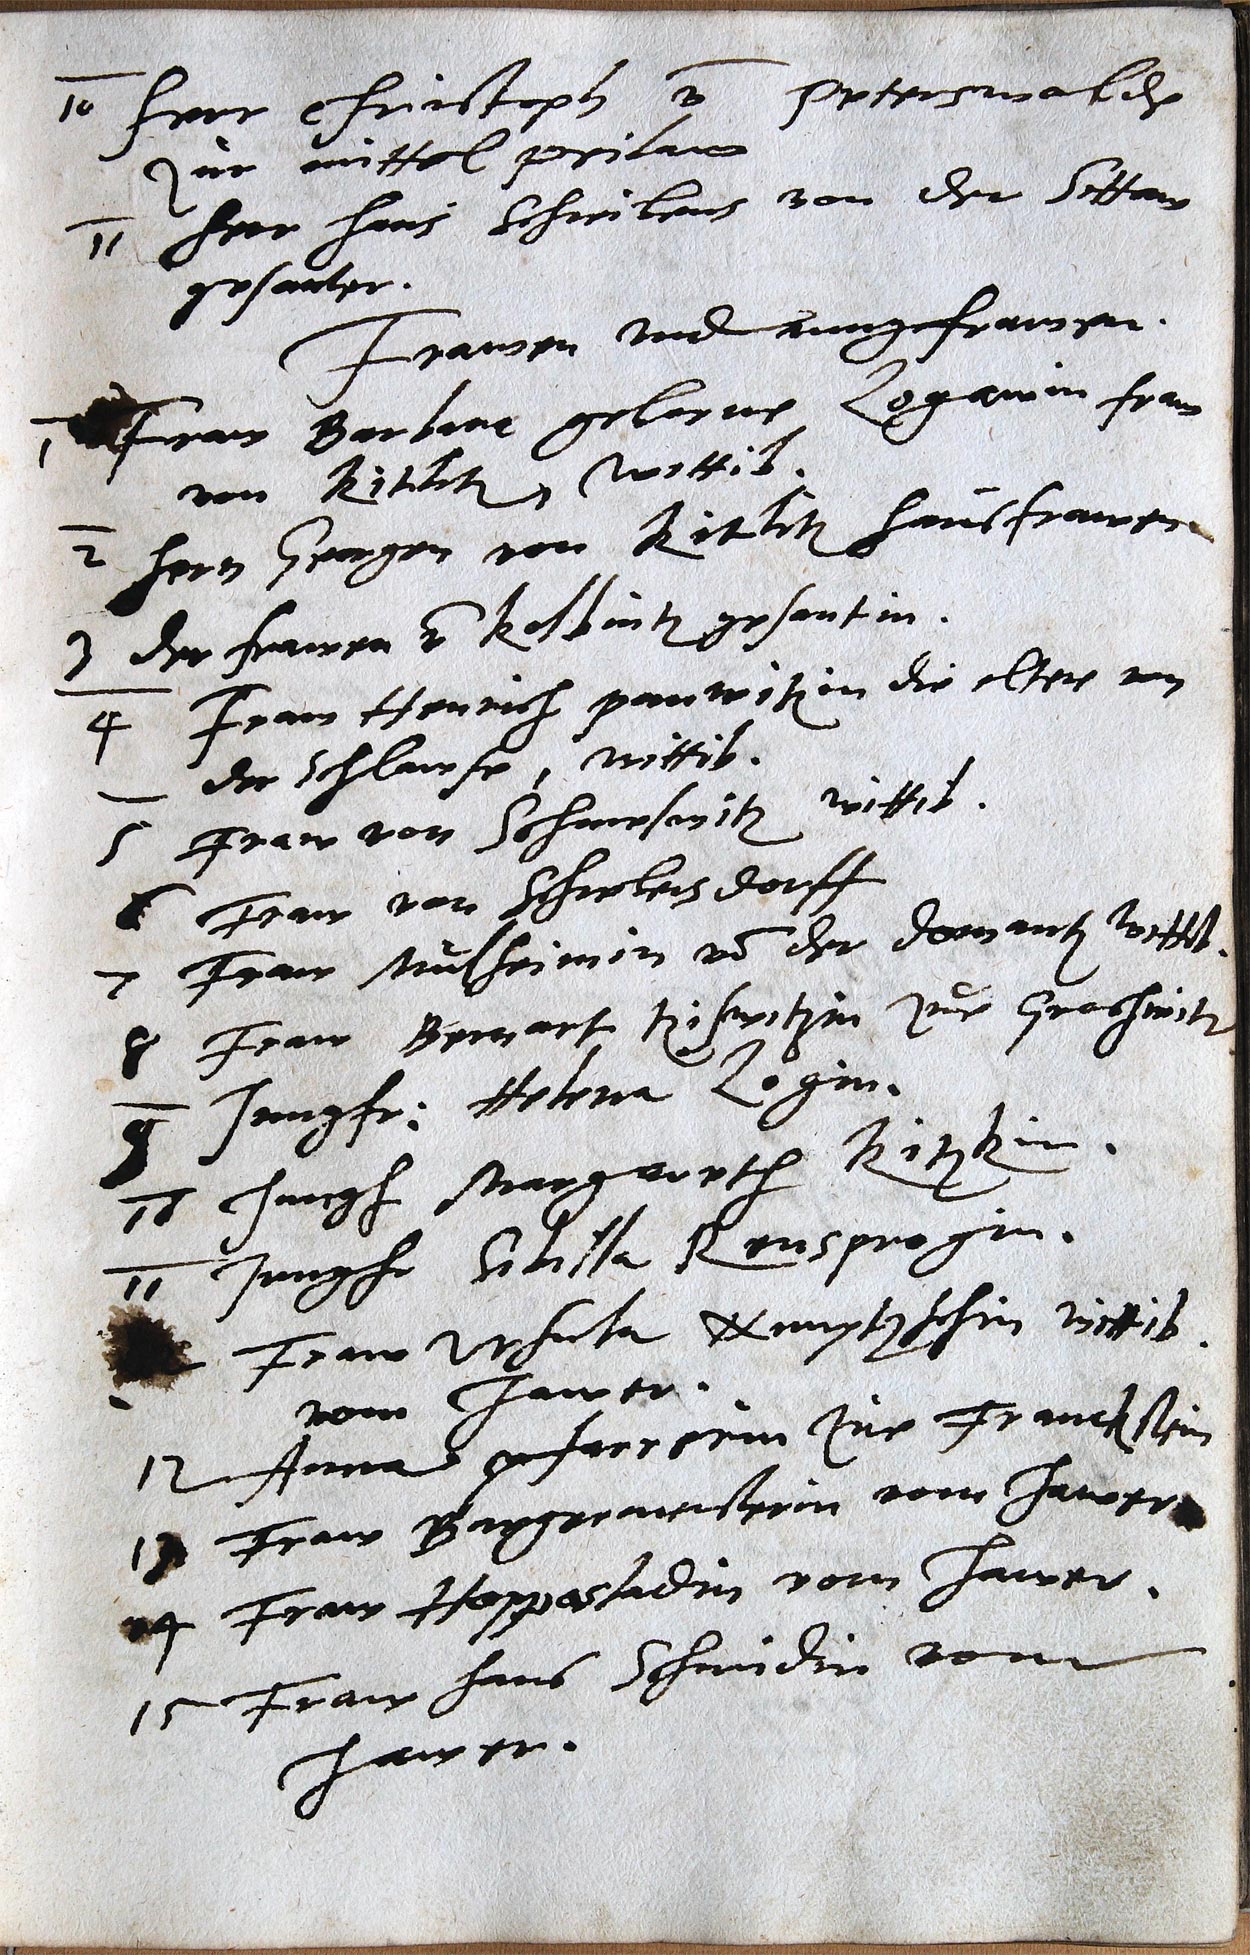 10 Herr Christoph v Peterswalde
zur mittel peilaw
11 Herr Hans Schreibers von der Sittaw
gesanter.
Frawen vnd Jungefrawen.
1 Fraw Barbara geborne Logawin fraw
von Kitlitz, Wittib.
2 Hern Georgen von Kitlitz hausfrawen
3 der frawen v Kolbnitz gesantin.
4 Fraw Henrich panwitzin die elter von
der Schlawpe, wittib.
5 Fraw von Schweinitz wittib.
6 Fraw von Schwbersdorff
7 Fraw Mulheimin vo der domantz wittib.
8 Fraw Bernart tziswitzin zur Groshenitz
9 Jungfr: Helena Login.
10 Jungf Margareth Kitzkin.
11 Jungfr Sibilla Renspergin.
Fraw Vrsula Nemptzschin wittib.
vom Jawer.
12 Anna pfarrerin zur Franckstein
13 Fraw Burgermeisterin vom Jawer
14 Fraw Hoppostadin vom Jawer.
15 Fraw Hans Schmidin vom
Jawer.